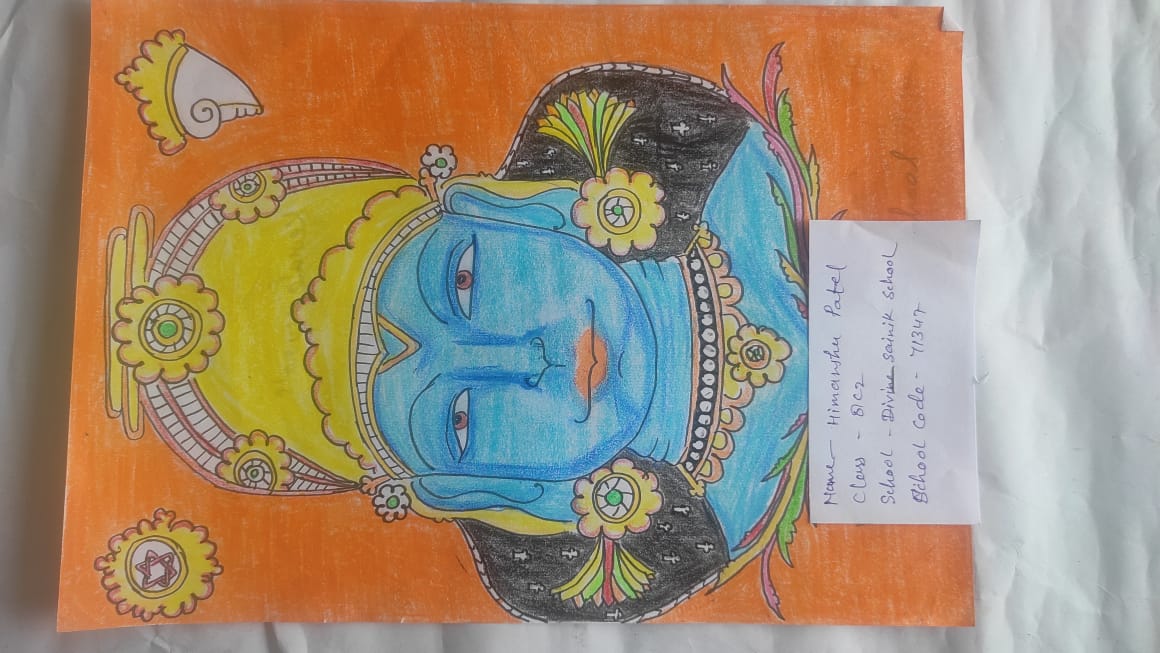 Name - Himanshu Patel
Class - 8/C2
School - Divine Sainik School
School Code - 71347